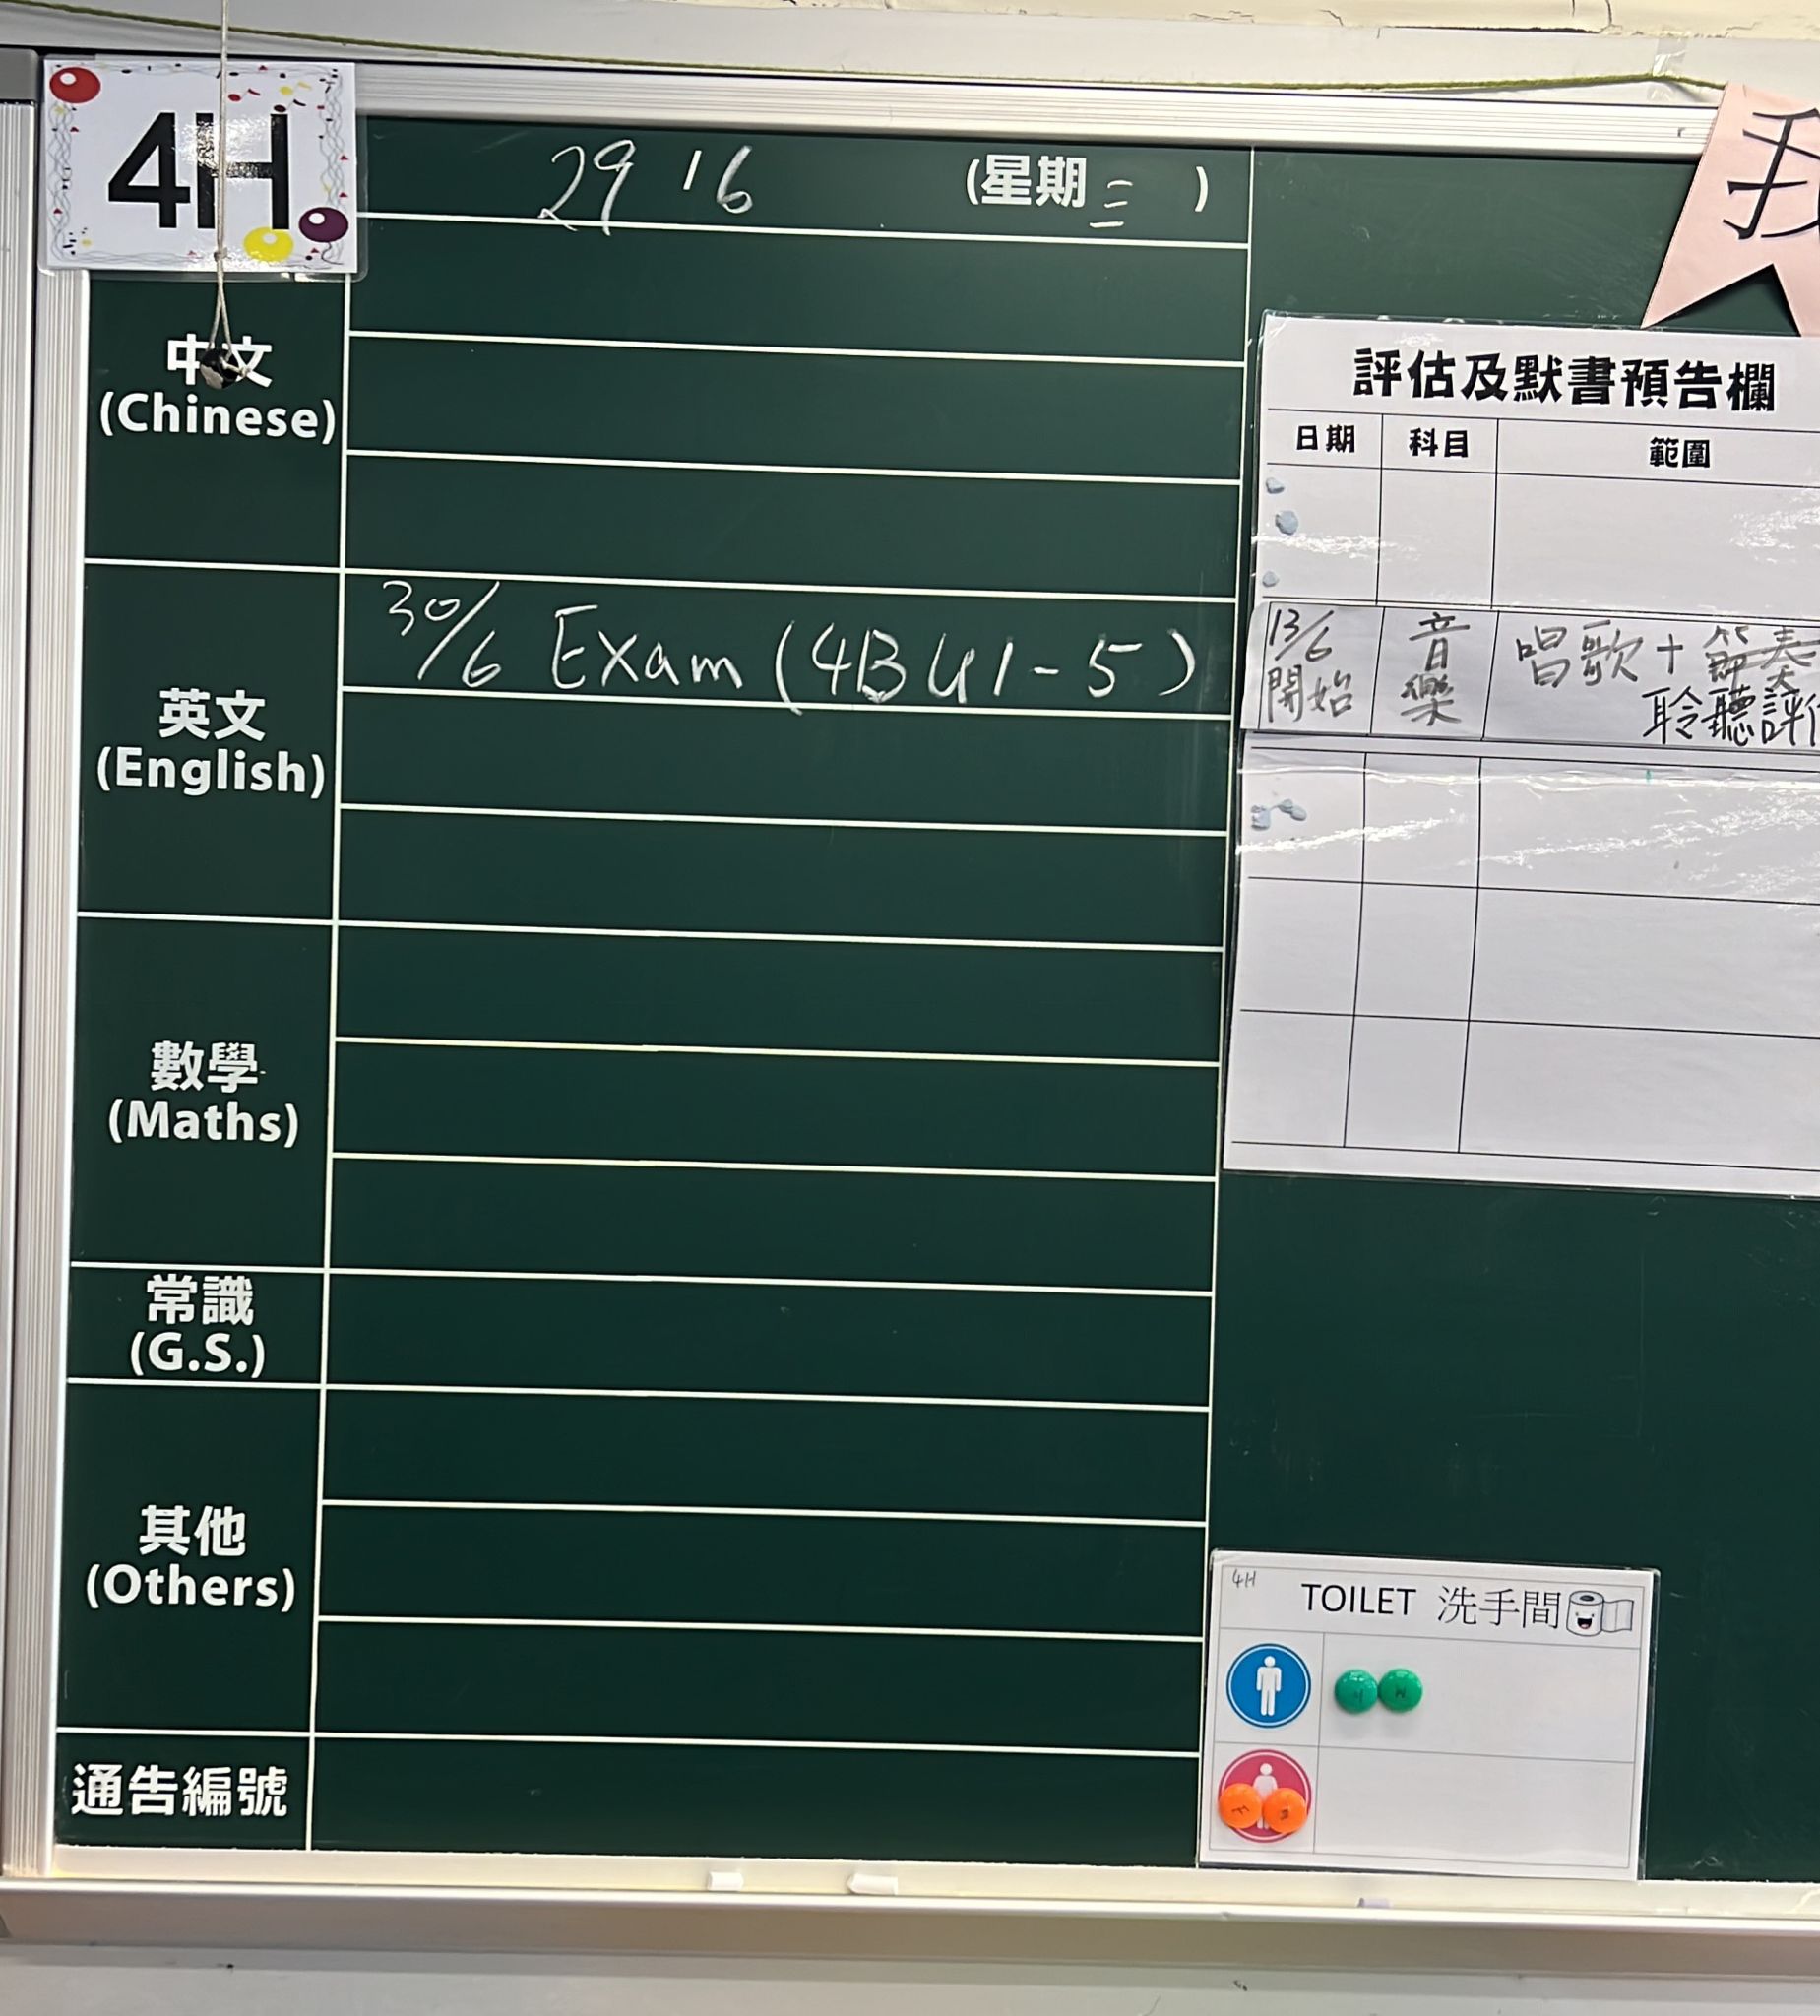 4H
29 16 (星期三)
中文
(Chinese)
英文
(English)
30/6 Exam (4B U1-5)
數學
(Maths)
常識
(G.S.)
其他
(Others)
通告編號
我
評估及默書預告欄
日期 科目 範圍
13/6 開始 音樂 唱歌+節奏
聆聽評
4H
TOILET 洗手間